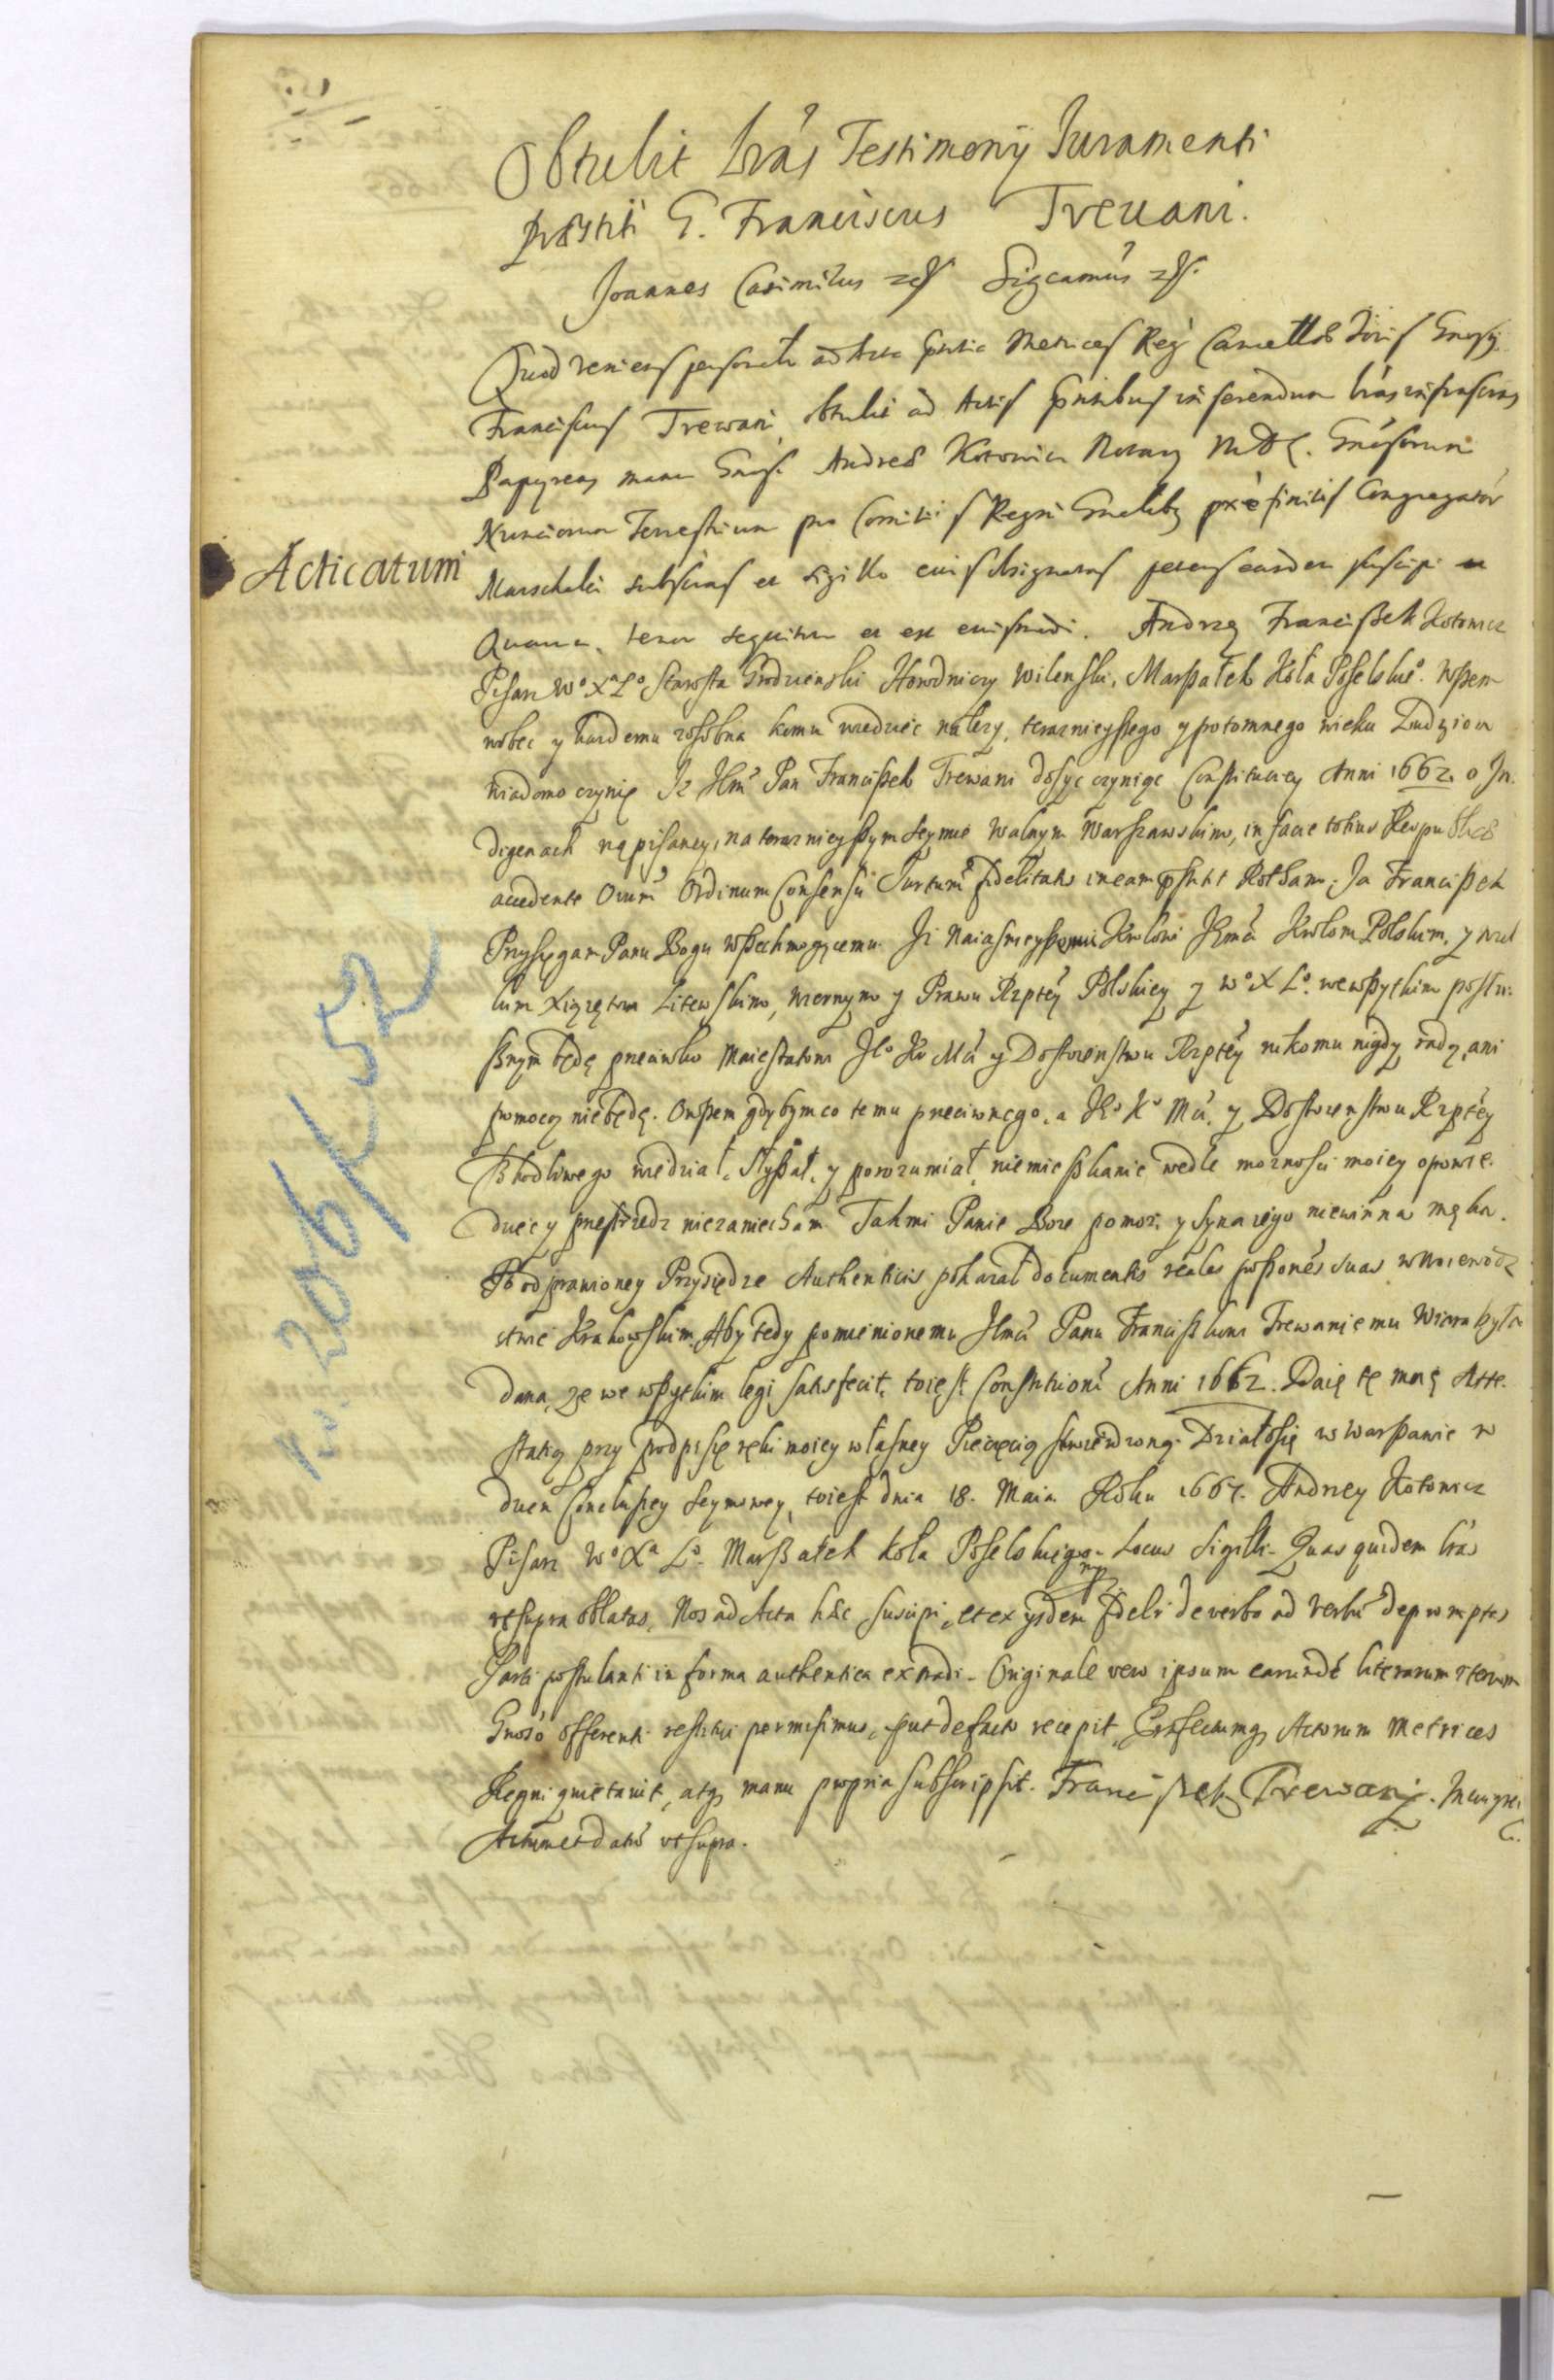 Obtulit Lrás Testimonÿ Iuramenti
præstiti G. Franciscus Trevani.
Joannes Casimirus
Quod veniens personalr ad Acta pntia Metrices Regni Cancellæ
Franciscus Trewani, obtulit ad Actis pntibus inserendum lras infrascrptas
Papyreas manu Andreæ Kotowicz Notary M D L.
Nunciorum Terrestrium pro Comitiis Regni præsinitis Congregator
Acticatum
Marschalci subscras et sigillo eius designatas petens easdem suscipi
Quarum tenor sequitur et est eiusmodi. Andrzej Franciszek Kotowicz
Pisarz Wº Xª Lº Starosta Grodzienski Horodniczy Wilenski, Marszałek Koła Poselskiº. Wszem
wobec y kazdemu zosobna komu wiedziec nalezy, teraznieyszego y potomnego wieku Ludziom
wiadomo czynię Iz Jłm Pan Franciszek Trewani dosyc czyniąc Constituciey Anni 1662. o In-
digenach napisaney, na teraznieyszym Seymie Walnym Warszawskim, in facie totius Reipublicæ
accedente Oium Ordinum Consensu Iurtum fidelitatis in eam pstitit Rotham. Ja Franciszek
Przysięgam Panu Bogu wszechmogącemu Iz Naiasnieyszemu Krolowi Jłmci Krolom Polskim, y wiel
kim Xiązętom Litewskim, wiernym y Prawu Rzptey Polskiey y Wº X Lº. we wszytkim poslu-
sznym będę przeciwko Maiestatowi Jº Kr Mci y Dostoienstwu Rzptey nikomu nigdy radą, ani
pomocą niebędę. Owszem gdybym co temu przeciwnego, a Jº Kº Mci, y Dostoienstwu Rzptey
szkodliwego wiedział, słyszał, y porozumiał, niemieszkanie wedle moznosci moiey opowie-
dziec y przestrzedz niezaniecham. Tak mi Panie Boze pomoz, y Syna iego niewinna męka.
Po odprawioney Przysiędze Authenticis pokazał documentis reales possnes suas w Woiewodz
stwie Krakowskim. Aby tedy pomienionemu Jłmci Panu Franciszkowi Trewaniemu Wiara była
dana, ze we wszytkim legi satisfecit, toiest Constitutioni Anni 1662. Daię tę moię Atte-
statią przy podpisię ręki moiey własney Pieczęcią stwierdzoną. Działo się w Warszawie w
dzien Conclusiey Seymowey, toiest dnia 18. Maia Roku 1667. Andrzey Kotowicz
Pisarz Wº Xª Lº Marszałek koła Poselskiego. Locus Sigilli. Quas quidem lras
vt supra oblatas, Nos ad Acta hæc suscipi, et ex ysdem fideli de verbo ad verbu depromptas
Parti postulanti in forma authentica extradi. Originale vero ipsum earundé literarum iterum
Gnoso offerenti restitui permisimus, put de facto recepit, Præfectumq Actorum Metrices
Regni quietavit, atq manu propria subscripsit. Franciszek Trewani.
Actum et datu vt supra.